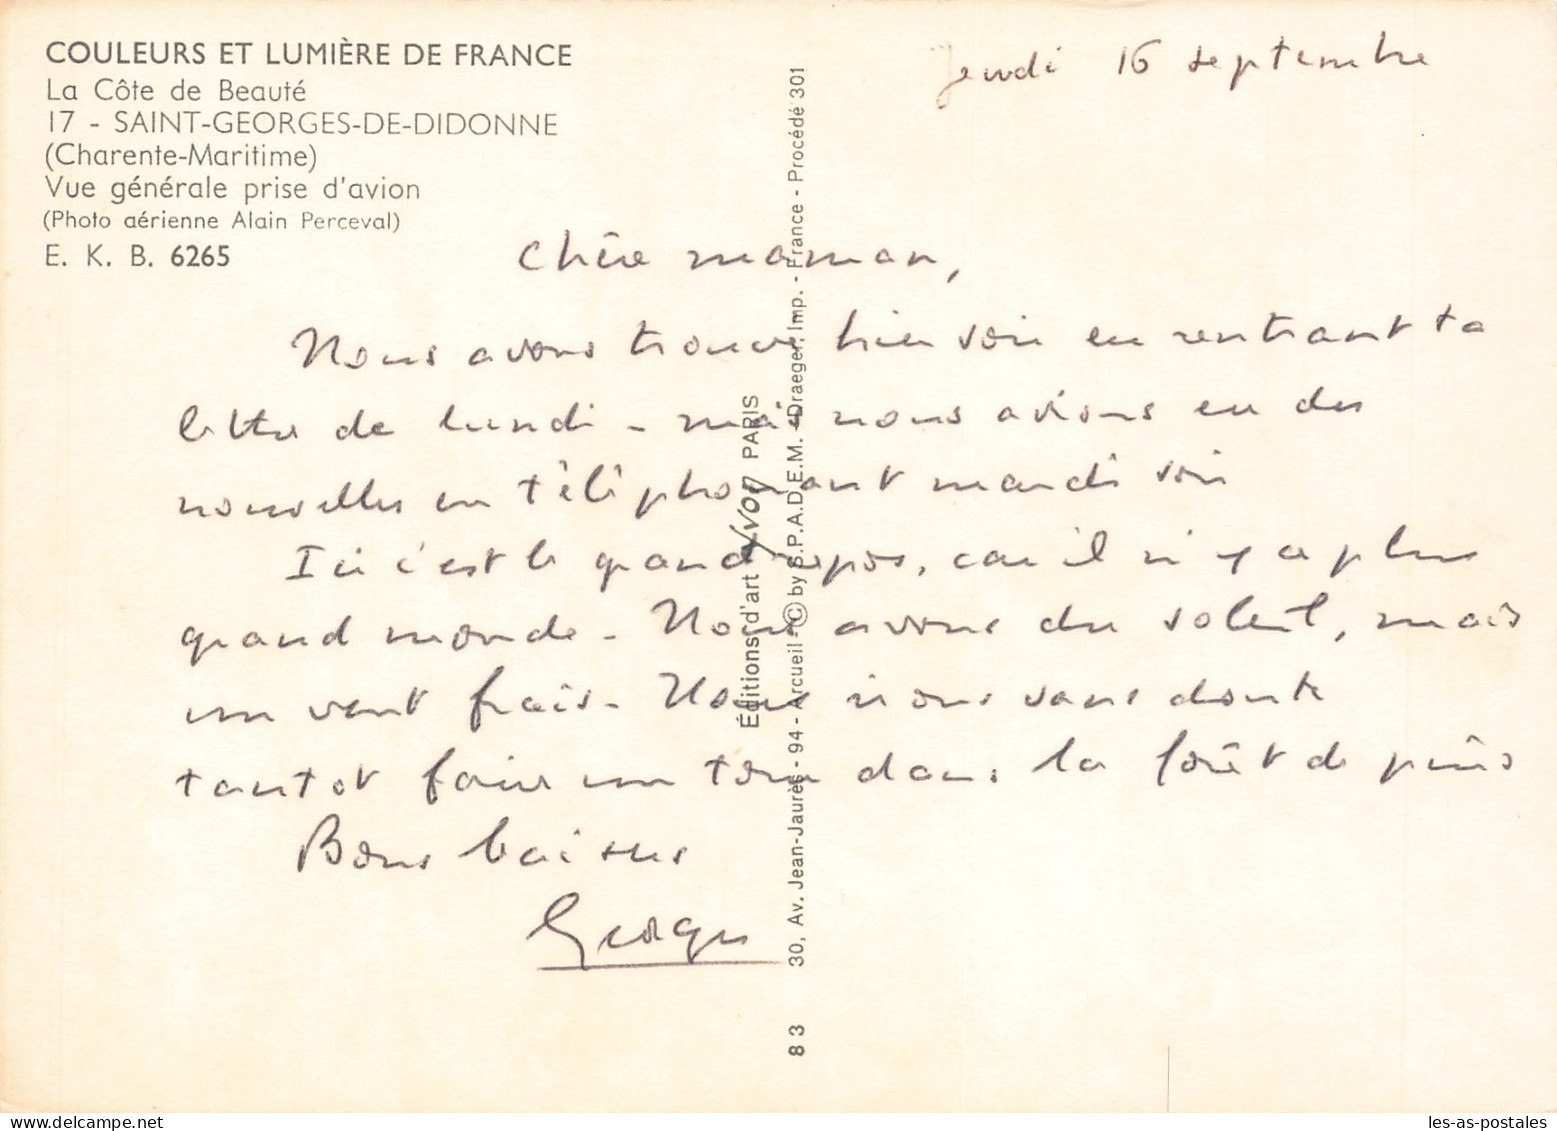 COULEURS ET LUMIÈRE DE FRANCE
La Côte de Beauté
17 - SAINT-GEORGES-DE-DIDONNE
(Charente-Maritime)
Vue générale prise d'avion
(Photo aérienne Alain Perceval)
E. K. B. 6265
Jeudi 16 septembre
Chère maman,
Nous avons trouvé hier soir en rentrant ta
lettre de lundi - mais nous avions eu des
nouvelles en téléphonant mardi soir
Ici c'est le grand repos, car il n'y a plus
grand monde - Nous avons du soleil, mais
un vent frais - Nous irons sans doute
tantot faire un tour dans la forêt de pins
Bons baisers
Georges
Éditions d'art YVON PARIS
30, Av. Jean-Jaurès - 94 - Arcueil - © by S.P.A.D.E.M. - Draeger, Imp. - France - Procédé 301
83
les-as-postales